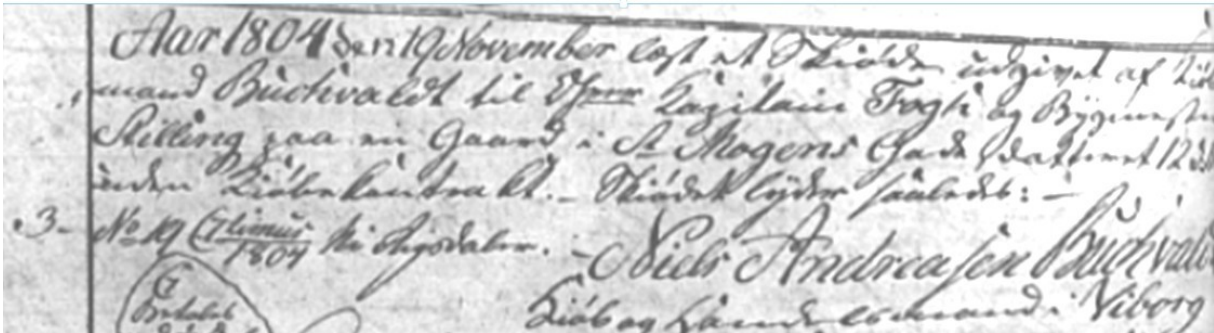 Aar 1804 den 19 November læst et Skiøde udgivet af Kiøb
mand Buchvaldt til Hr Capitain Fogh og Bÿgmester
Stilling paa en Gaard i St Mogens Gade datteret 12 d
uden Kiöbekontrakt. – Skiödet lÿder saaledes: –
3 – No 19 Ctimus 1804 Rigsdaler. – Niels Andreasen Buchvald
Betales Kiöb og Handelsmand i Viborg